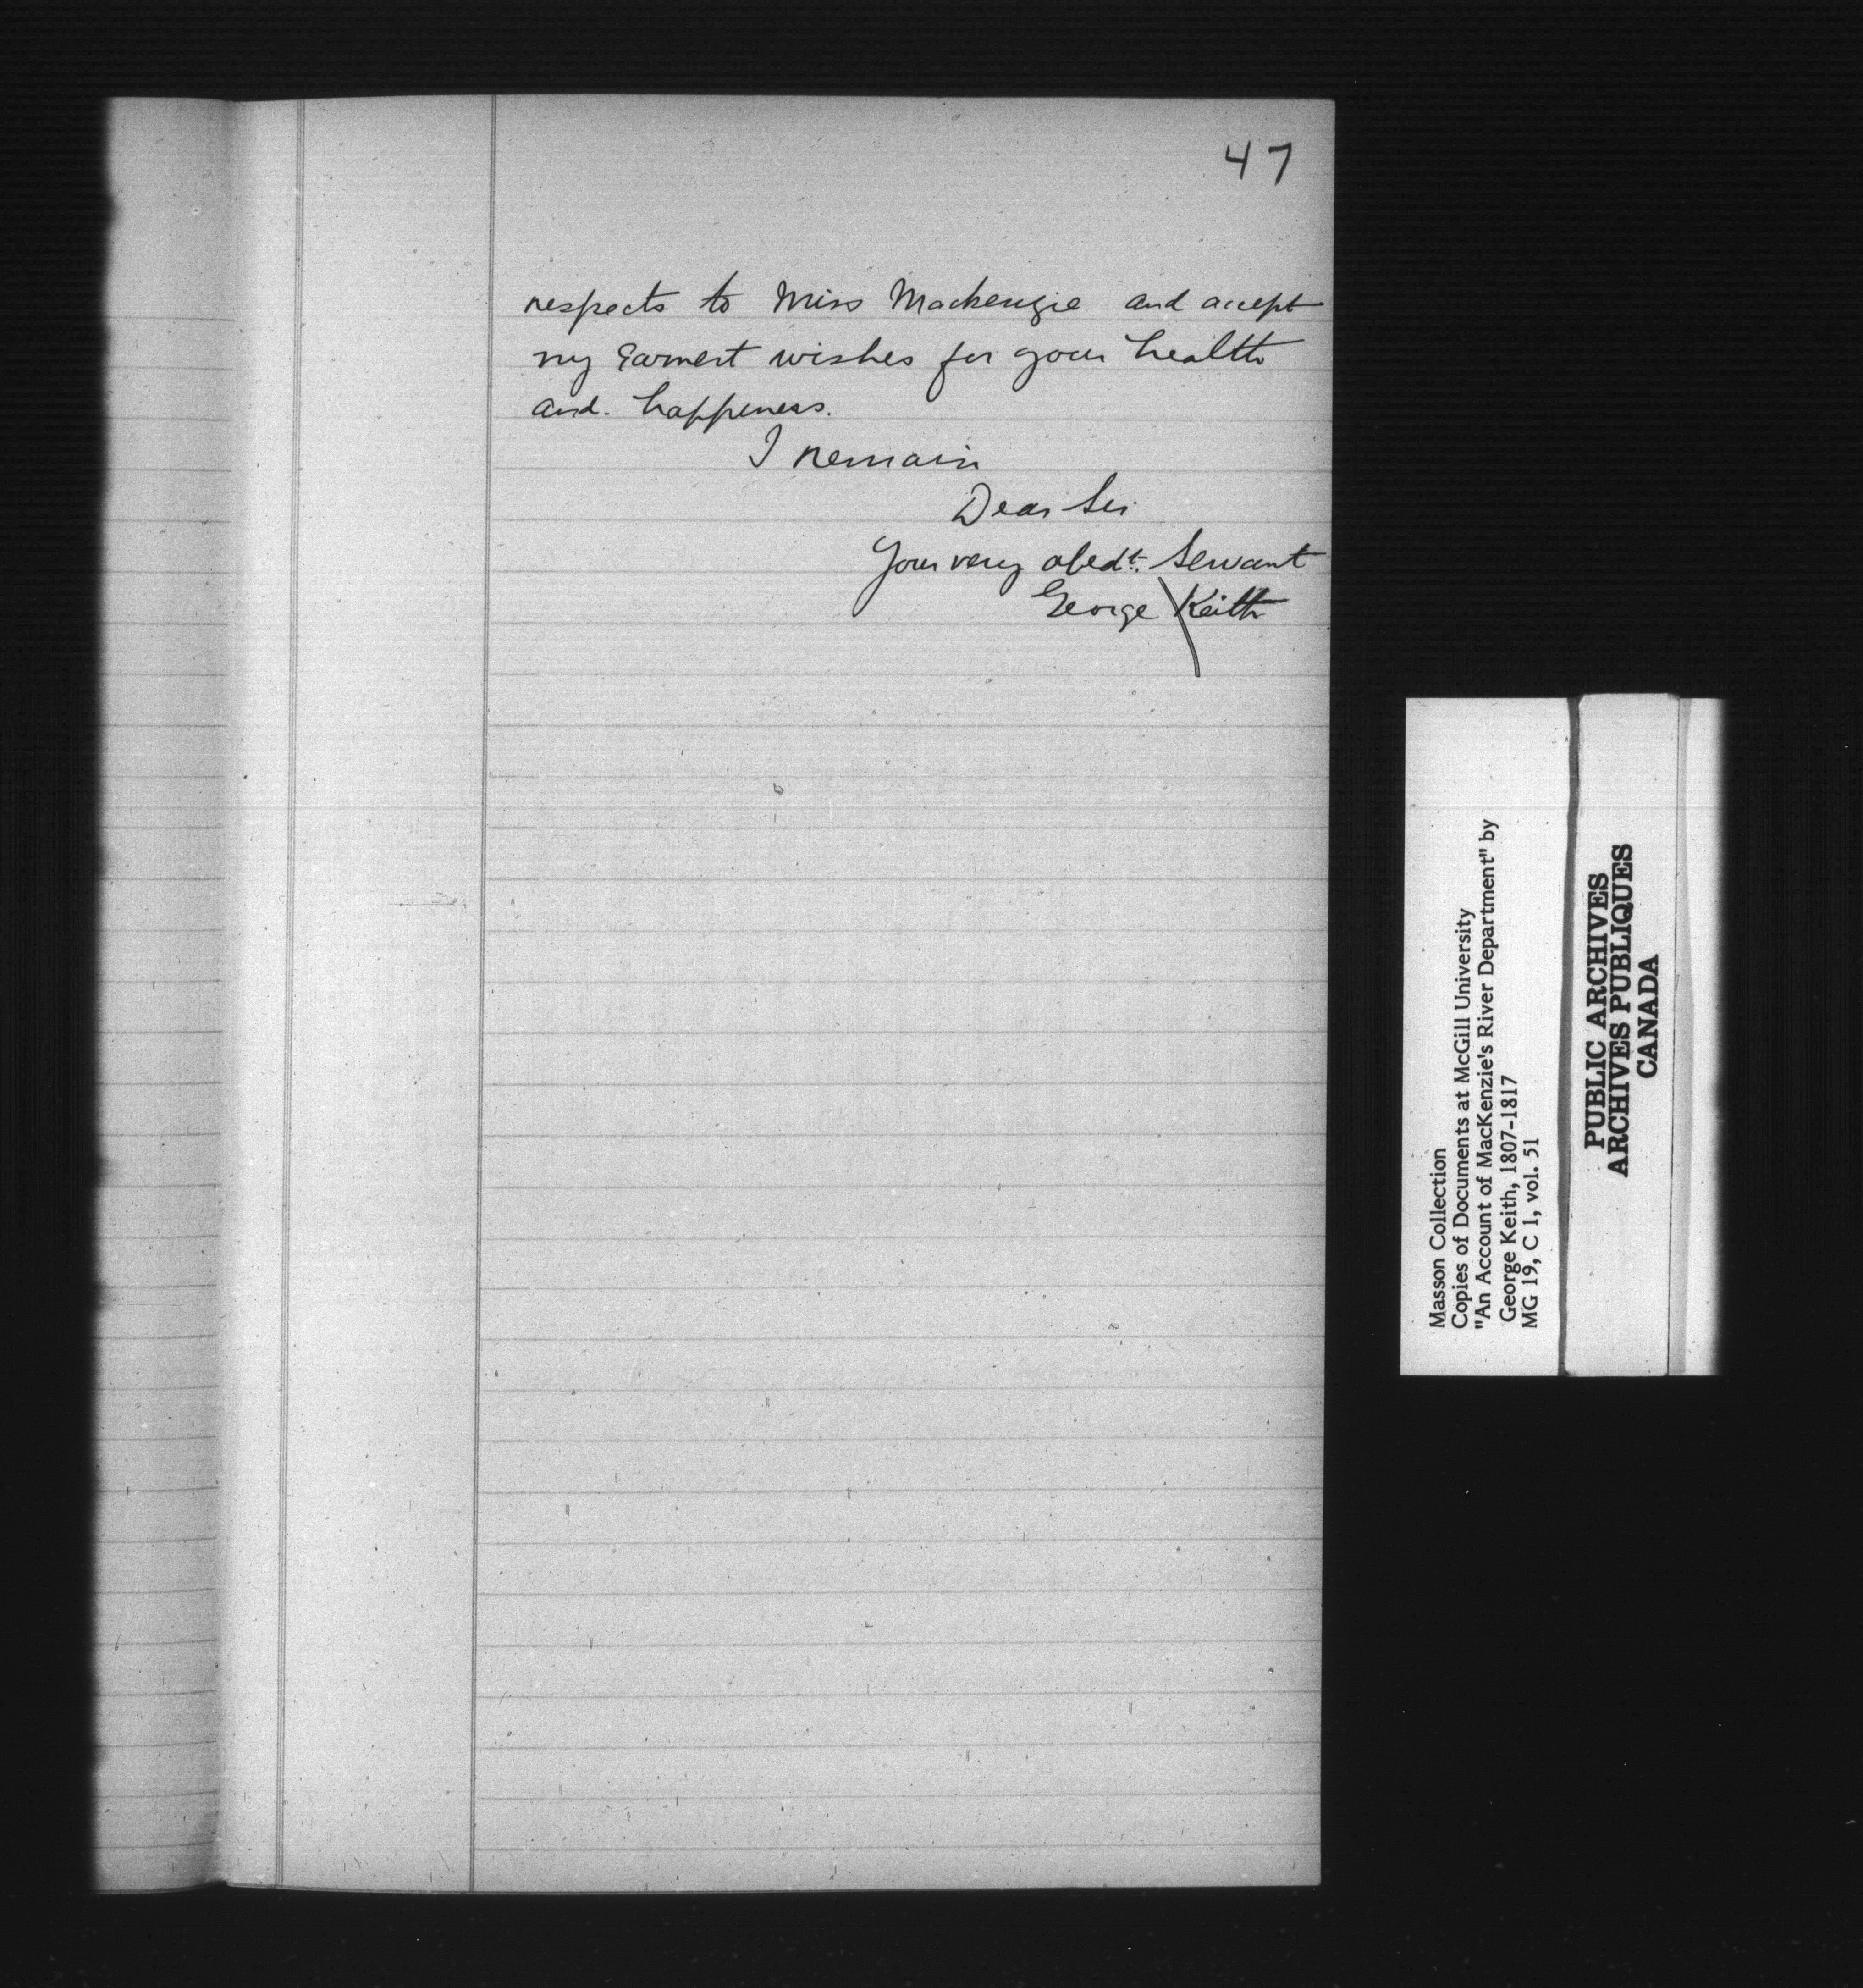 47
respects to Miss Mackenzie and accept
my Earnest wishes for your health
and. happiness.
I remain
Dear Sir
Your very obedt. Servant
George Keith
Masson Collection
Copies of Documents at McGill University
"An Account of MacKenzie's River Department" by
George Keith, 1807-1817
MG 19, C 1, vol. 51
PUBLIC ARCHIVES
ARCHIVES PUBLIQUES
CANADA